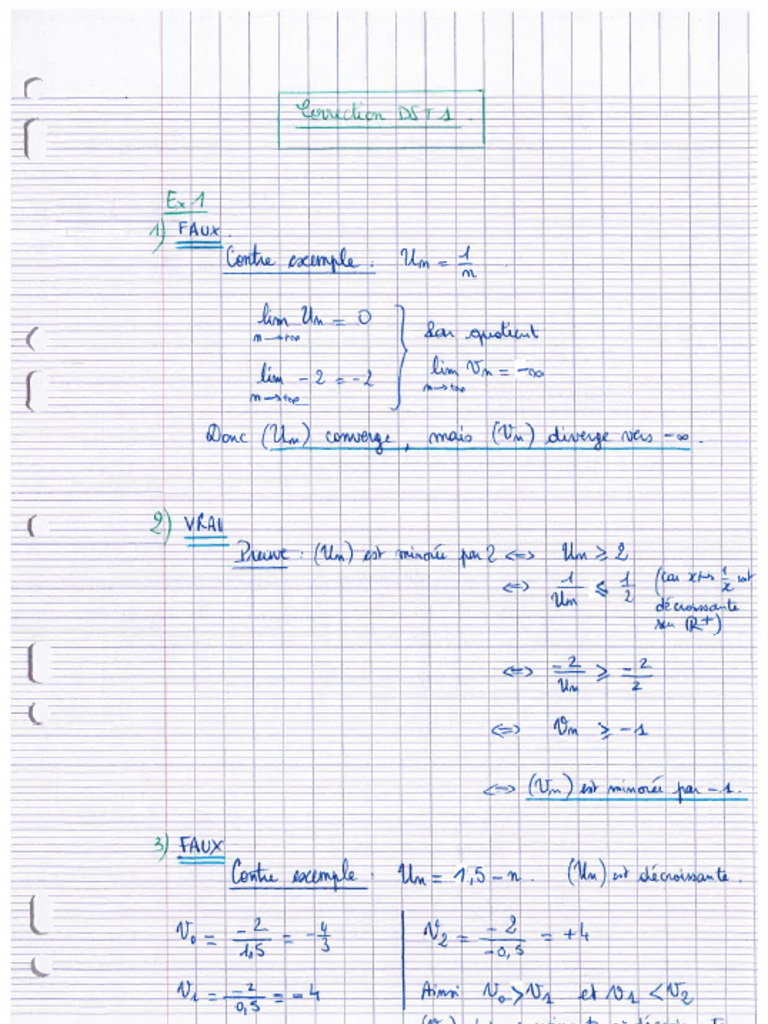 Correction DST 1.
Ex 1
1) FAUX.
Contre exemple : Un = 1/n
lim Un = 0
n→+∞
lim -2 = -2
n→+∞
Par quotient
lim Vn = -∞
n→+∞
Donc (Un) converge, mais (Vn) diverge vers -∞.
2) VRAI
Preuve : (Un) est minorée par 2 <=> Un ⩾ 2
<=> 1/Un ⩽ 1/2 (car x↦ 1/x est
décroissante
sur ℝ+)
<=> -2/Un ⩾ -2/2
<=> Vn ⩾ -1
<=> (Vn) est minorée par -1.
3) FAUX
Contre exemple : Un = 1,5 - n. (Un) est décroissante.
V0 = -2/1,5 = -4/3
V1 = -2/0,5 = -4
V2 = -2/-0,5 = +4
Ainsi V0 > V1 et V1 < V2